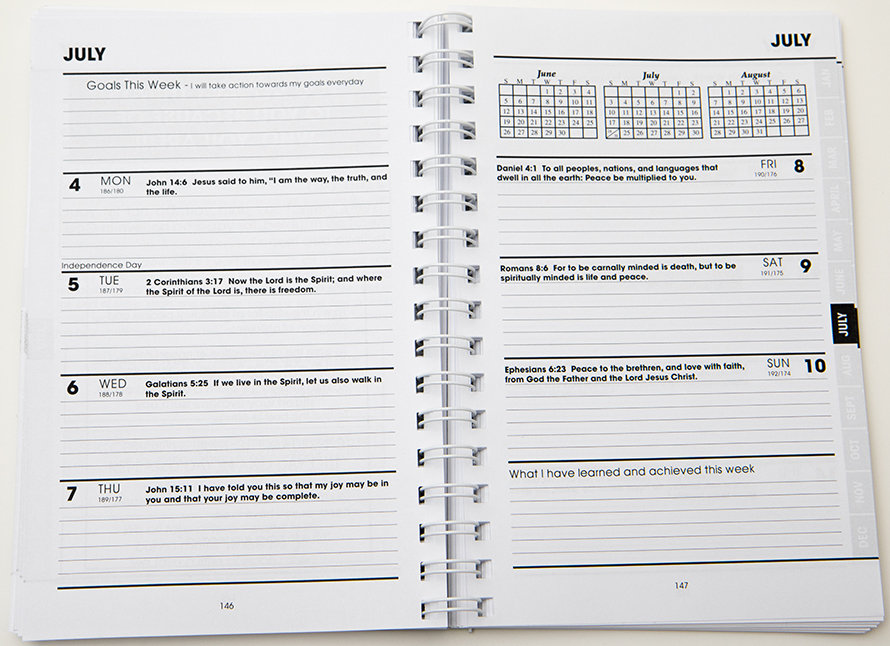 JULY
Goals This Week - I will take action towards my goals everyday
4 MON
186/180
John 14:6 Jesus said to him, “I am the way, the truth, and
the life.
Independence Day
5 TUE
187/179
2 Corinthians 3:17 Now the Lord is the Spirit; and where
the Spirit of the Lord is, there is freedom.
6 WED
188/178
Galatians 5:25 If we live in the Spirit, let us also walk in
the Spirit.
7 THU
189/177
John 15:11 I have told you this so that my joy may be in
you and that your joy may be complete.
146
JULY
June
S M T W T F S
1 2 3 4
5 6 7 8 9 10 11
12 13 14 15 16 17 18
19 20 21 22 23 24 25
26 27 28 29 30
July
S M T W T F S
1 2
3 4 5 6 7 8 9
10 11 12 13 14 15 16
17 18 19 20 21 22 23
25 26 27 28 29 30
August
S M T W T F S
1 2 3 4 5 6
7 8 9 10 11 12 13
14 15 16 17 18 19 20
21 22 23 24 25 26 27
28 29 30 31
Daniel 4:1 To all peoples, nations, and languages that
dwell in all the earth: Peace be multiplied to you.
FRI 8
190/176
Romans 8:6 For to be carnally minded is death, but to be
spiritually minded is life and peace.
SAT 9
191/175
Ephesians 6:23 Peace to the brethren, and love with faith,
from God the Father and the Lord Jesus Christ.
SUN 10
192/174
What I have learned and achieved this week
147
JAN
FEB
MAR
APRIL
MAY
JUNE
JULY
AUG
SEPT
OCT
NOV
DEC